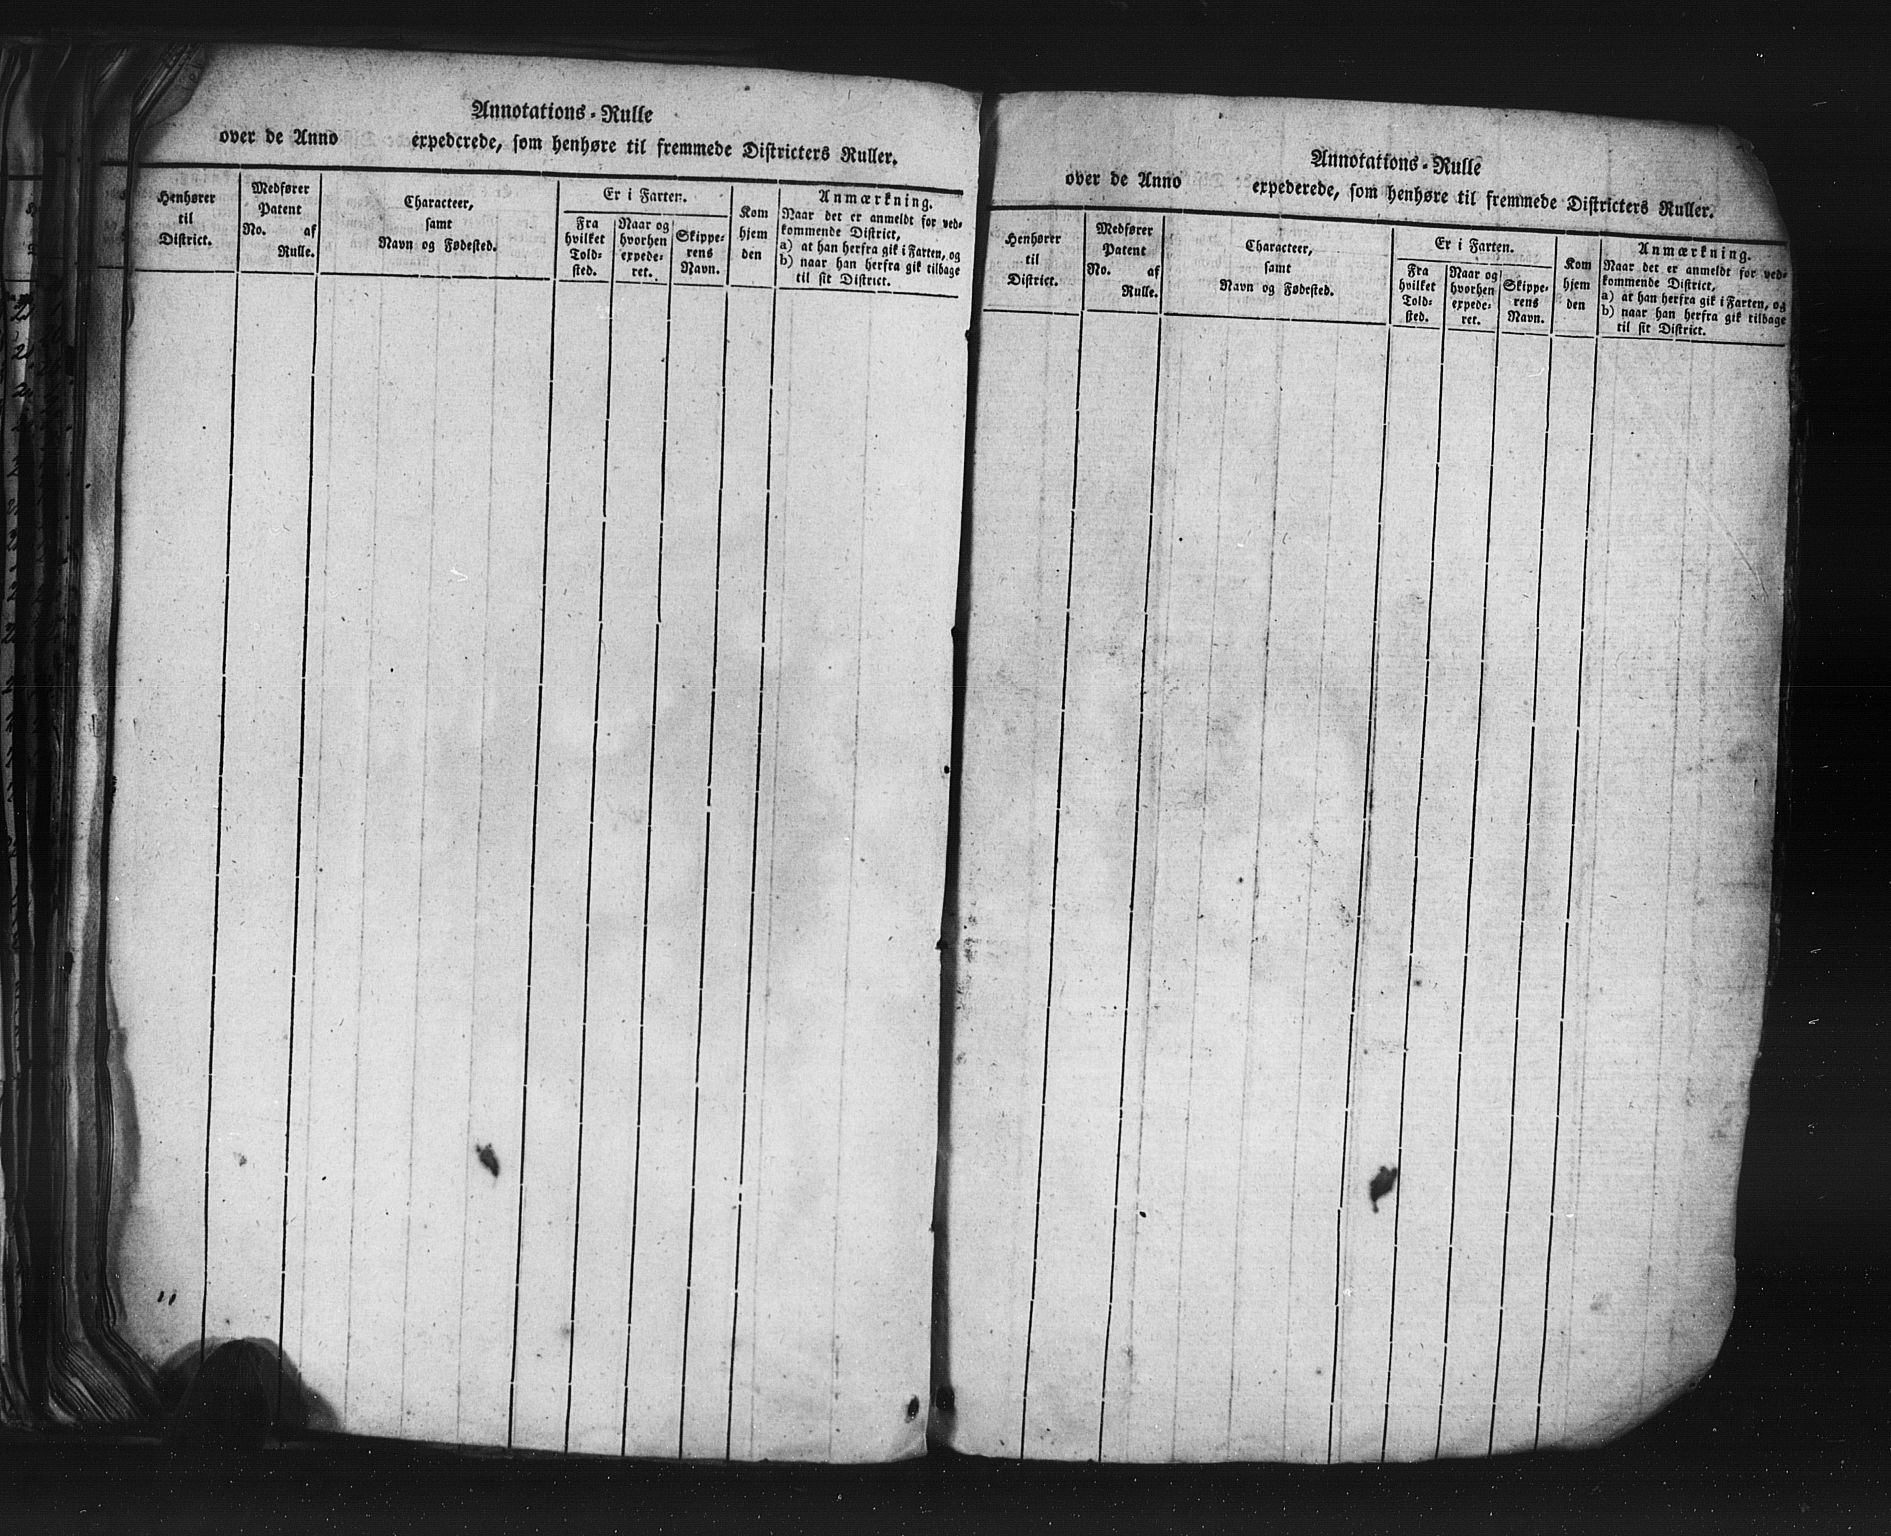 Annotations-Rulle
over de Anno expederede, som henhøre til fremmede Districter's Ruller.
Henhører
til
District.
Medfører
Patent
No. af
Rulle.
Characteer,
samt
Navn og Fødested.
Er i Farten.
Fra
hvilket
Told-
sted.
Naar og
hvorhen
expede-
ret.
Skippe-
rens
Navn.
Kom
hjem
den
Anmærkning.
Naar det er anmeldt for ved-
kommende District,
a) at han herfra gik i Farten, og
b) naar han herfra gik tilbage
til sit District.
Annotations-Rulle
over de Anno expederede, som henhøre til fremmede Districters Ruller.
Henhører
til
District.
Medfører
Patent
No. af
Rulle.
Characteer,
samt
Navn og Fødested.
Er i Farten.
Fra
hvilket
Told-
sted.
Naar og
hvorhen
expede-
ret.
Skippe-
rens
Navn.
Kom
hjem
den
Anmærkning.
Naar det er anmeldt for ved-
kommende District,
a) at han herfra gik i Farten, og
b) naar han herfra gik tilbage
til sit District.